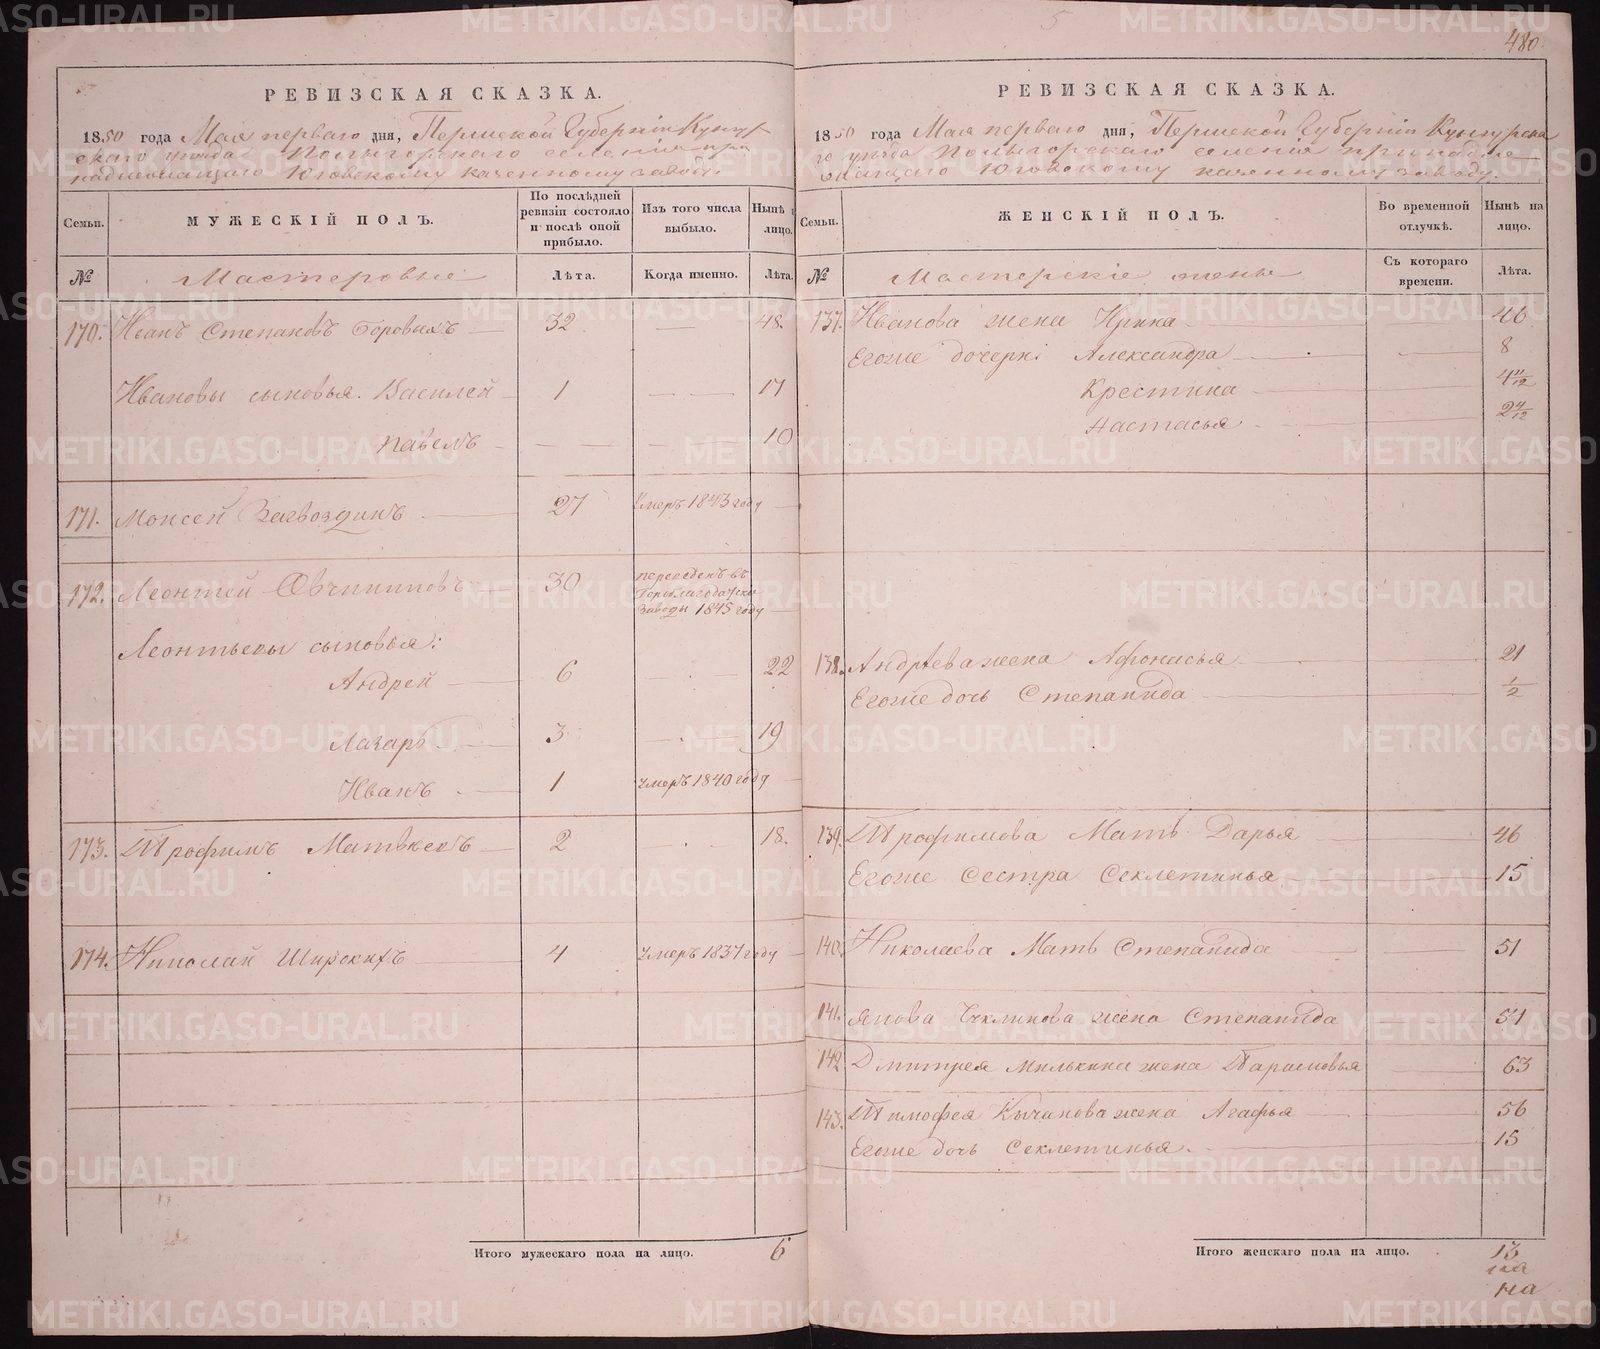 480
РЕВИЗСКАЯ СКАЗКА.
1850 года Мая перваго дня, Пермской Губерніи Кунгур-
скаго уѣзда Полыгорскаго селенія при
надлежащаго Юговскому казенному заводу.
Семьи.
МУЖЕСКІЙ ПОЛЪ.
По послѣдней ревизіи состояло и послѣ оной прибыло.
Изъ того числа выбыло.
Нынѣ на лицо.
№
Мастеровые
Лѣта.
Когда именно.
Лѣта.
170. Иванъ Степановъ Боровыхъ 32 48.
Ивановы сыновья. Василей 1 17
Павелъ 10
171. Моисей Загвоздинъ 27 Умеръ 1843 году
172. Леонтей Овчинниковъ 30 переведенъ въ
Гороблагодатски
заводы 1845 году
Леонтьевы сыновья:
Андрей 6 22
Лазарь 3 19
Иванъ 1 Умеръ 1840 году
173. Трофимъ Матвѣевъ 2 18.
174. Николай Широкихъ 4 Умеръ 1837 году
Итого мужескаго пола на лицо. 6
РЕВИЗСКАЯ СКАЗКА.
1850 года Мая перваго дня, Пермской Губерніи Кунгурска
го уѣзда Полыгорскаго селенія принадле
жащаго Юговскому казенному заводу.
Семьи.
ЖЕНСКІЙ ПОЛЪ.
Во временной отлучкѣ.
Нынѣ на лицо.
№
Мастерскіе жены
Съ котораго времени.
Лѣта.
137. Иванова жена Ирина 40
Егоже дочери Александра 8
Крестина 4 11/12
Настасья 2 4/12
138. Андрѣева жена Афонасья 21
Егоже дочь Степанида 1/2
139. Трофимова Мать Дарья 46
Егоже Сестра Секлетинья 15
140. Николаева Мать Степанида 51
141. жена Степанида 51
142. Дмитрея Милькина жена Парасковья 63
143. Тимофея Кычанова жена Агафья 56
Егоже дочь Секлетинья. 15
Итого женскаго пола на лицо. 13